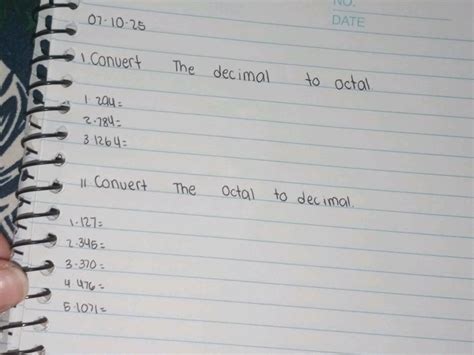 NO.
DATE
07-10-25
I Convert The decimal to octal
1. 294=
2. 784=
3. 1264=
II Convert The Octal to decimal.
1. 127=
2. 345=
3. 370=
4. 476=
5. 1071=